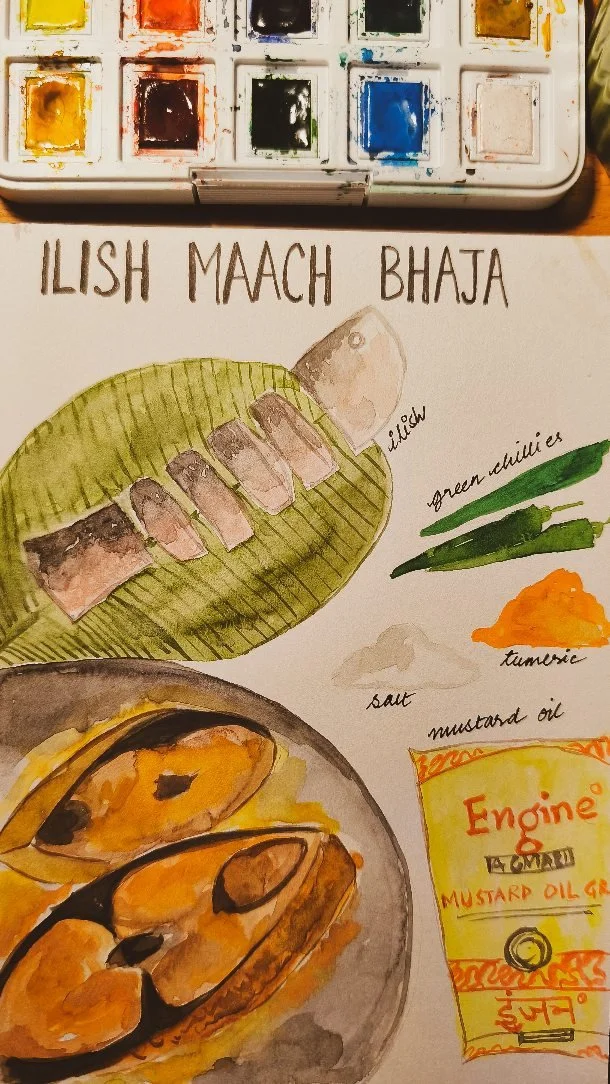 ILISH MAACH BHAJA
ilish
green chillies
turmeric
salt
mustard oil
Engine
MUSTARD OIL GR
इंजन